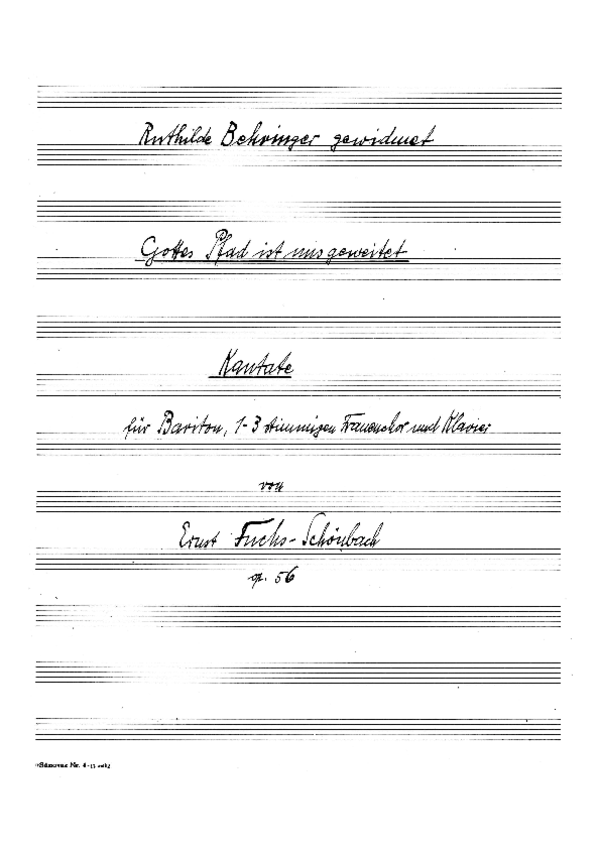 Ruthilde Behringer gewidmet
Gottes Pfad ist uns geweitet
Kantate
für Bariton, 1-3 stimmigen Frauenchor und Klavier
von
Ernst Fuchs-Schönbach
op. 56
Nr. 4